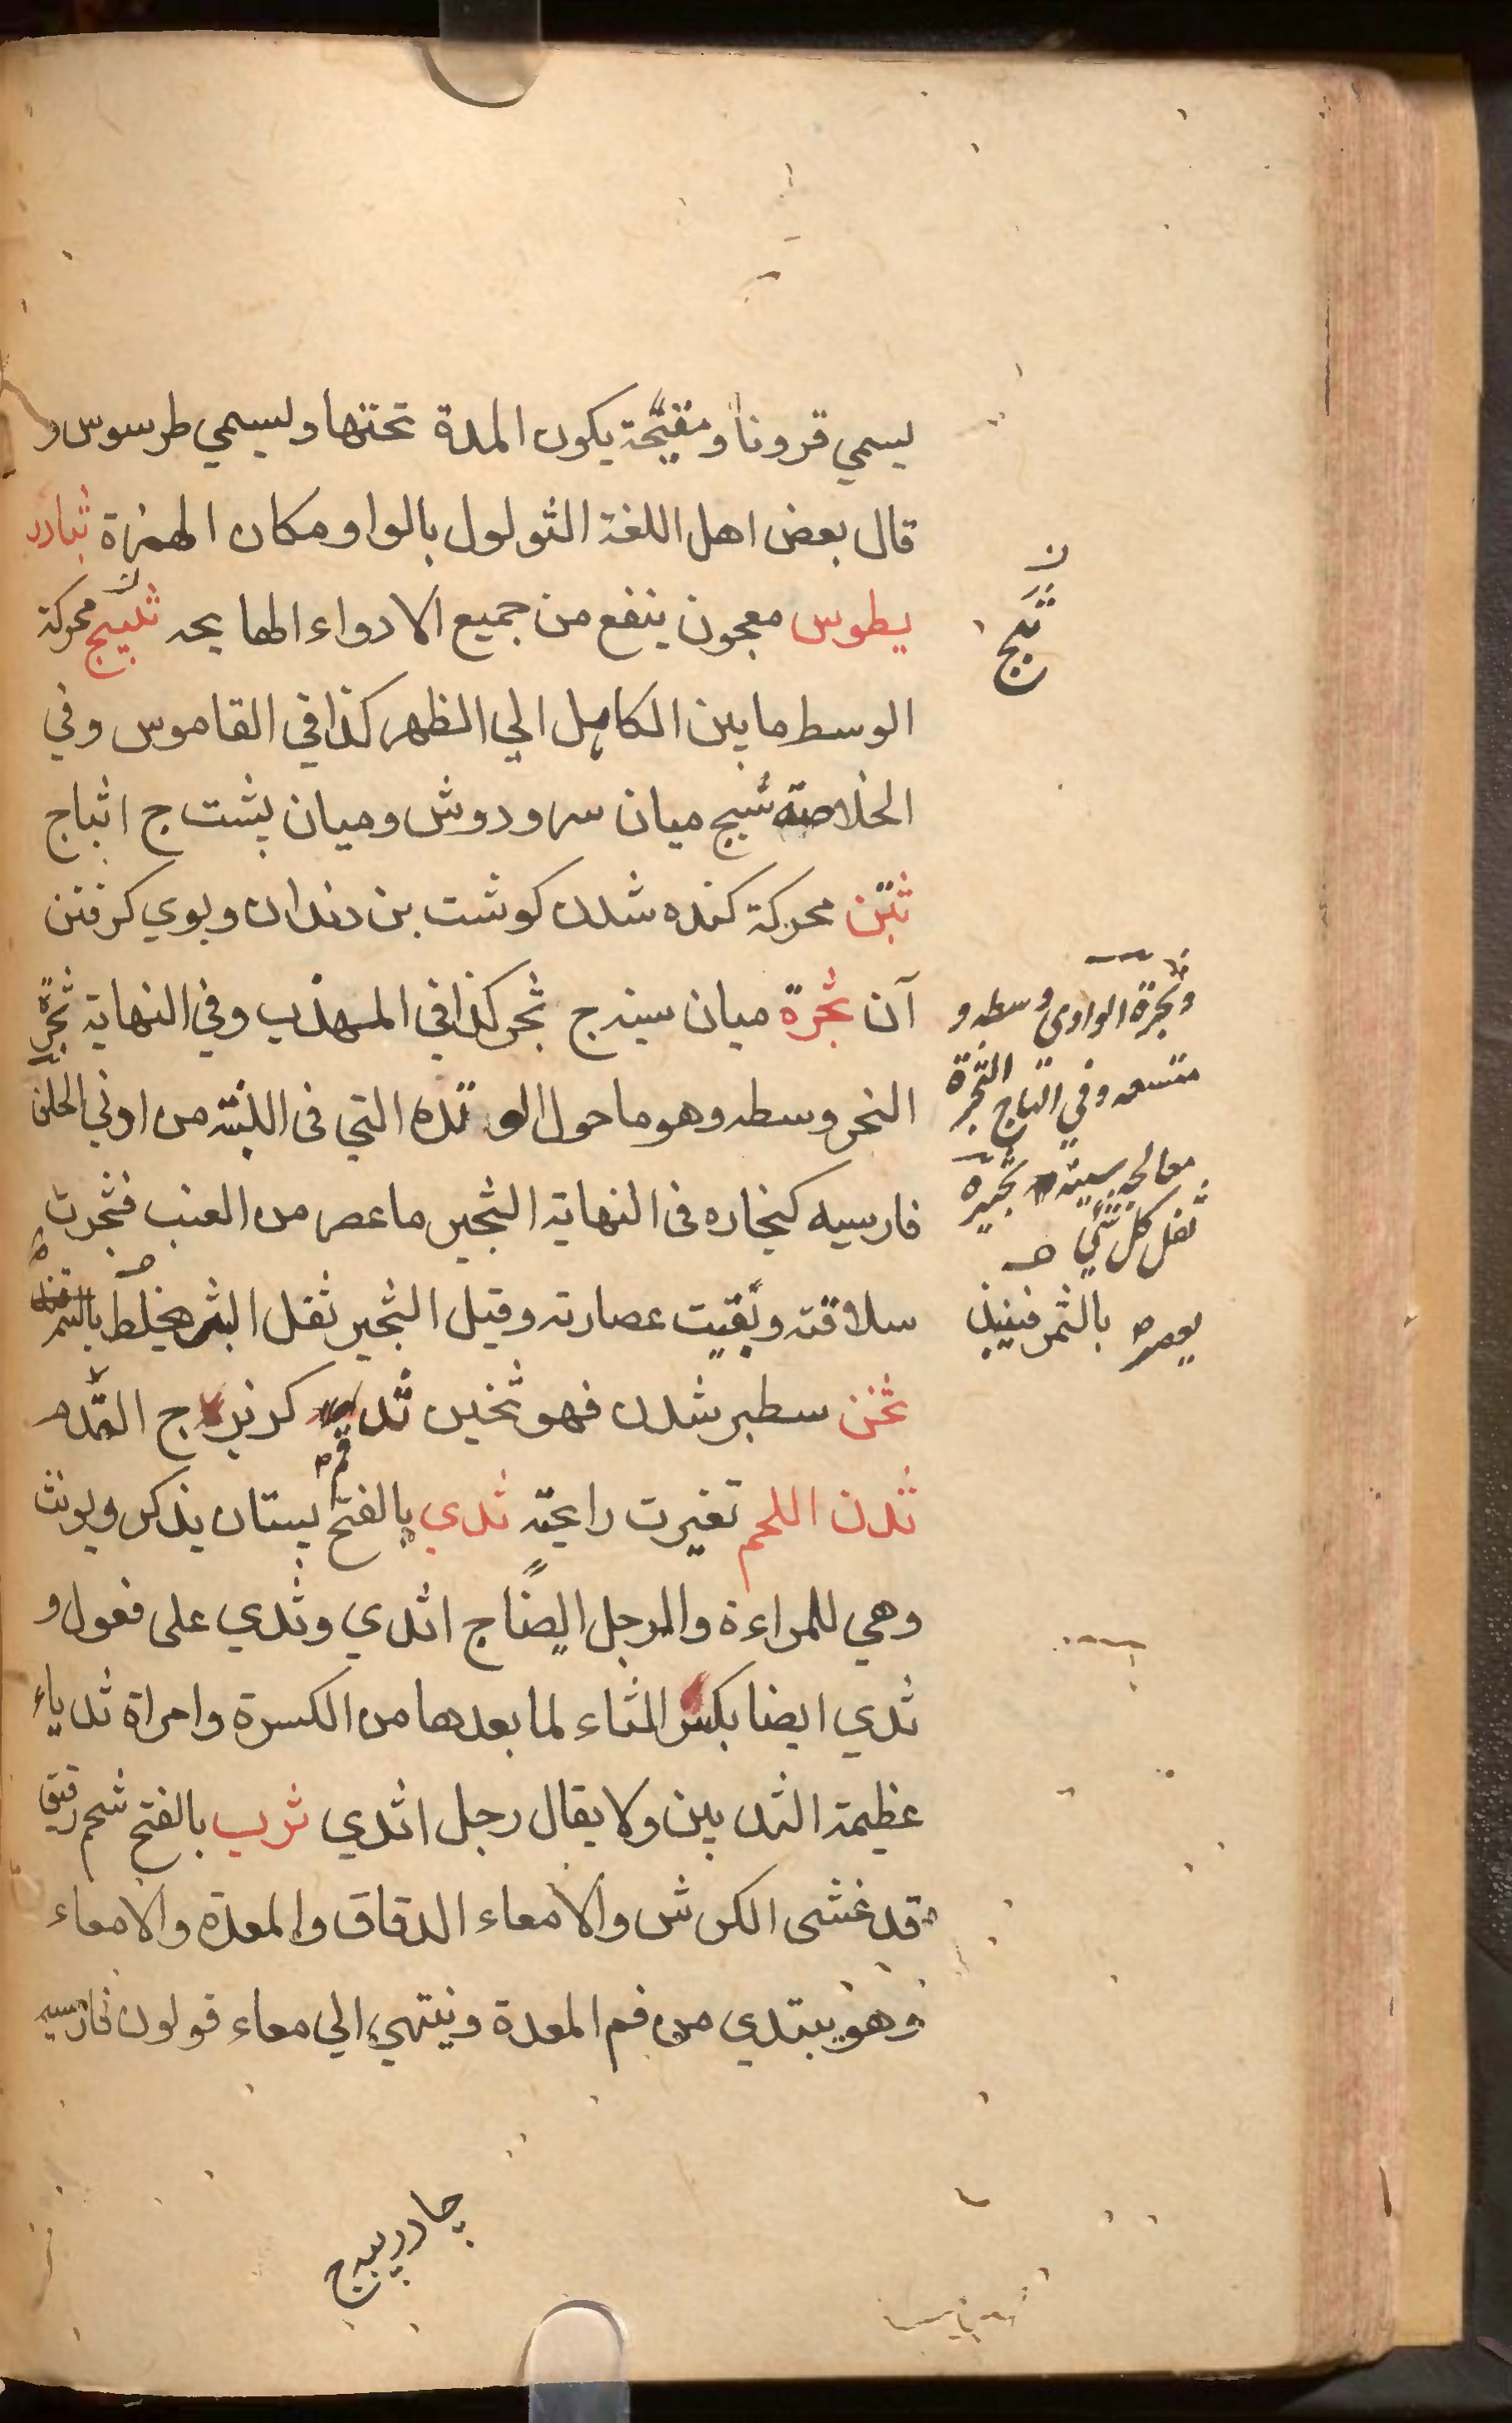 يسمي قرونا ومقيّحة يكون المدة تحتها ويسمي طرسوس و
قال بعض اهل اللغة الثولول بالواو مكان الهمزة ثبادر
يطوس معجون ينفع من جميع الادواء الهايجه ثبيج محركة
الوسط ما بين الكاهل الي الظهر كذا في القاموس وفي
الخلاصة ثبج ميان سر ودوش وميان پشت ج اثباج
ثتن محركة كنده شدن كوشت بن دندان وبوي كرفتن
آن ثجرة ميان سينه ج ثجر كذا في المهذب وفي النهاية ثجرة
النحر وسطه وهو ما حول الوهدة التي في اللبّة من ادني الحلق
فارسيه كنجاره في النهاية الثجير ما عصر من العنب فجرت
سلافته وبقيت عصارته وقيل الثجير ثقل البسر يخلط بالتمر
ثخن سطبر شدن فهو ثخين ج
ثدن اللحم تغيرت رايحته ثدي بالفتح پستان يذكر ويونث
وهي للمراءة والرجل ايضا ج اثدي وثدي على فعول و
ثدي ايضا بكسر الثاء لما بعدها من الكسرة وامراة ثدياء
عظيمة الثديين ولا يقال رجل اثدي ثرب بالفتح شحم رقيق
قد غشى الكرش والامعاء الدقاق والمعدة والامعاء
وهو يبتدي من فم المعدة وينتهي الي معاء قولون فارسيه
چادر پيه ج
ن
ثبج
وثجرة الوادي وسطه و
متسعه وفي التاج الثجرة
معالجه سينه ثجيرة
ثفل كل شي
يعصر بالتمر فينبذ